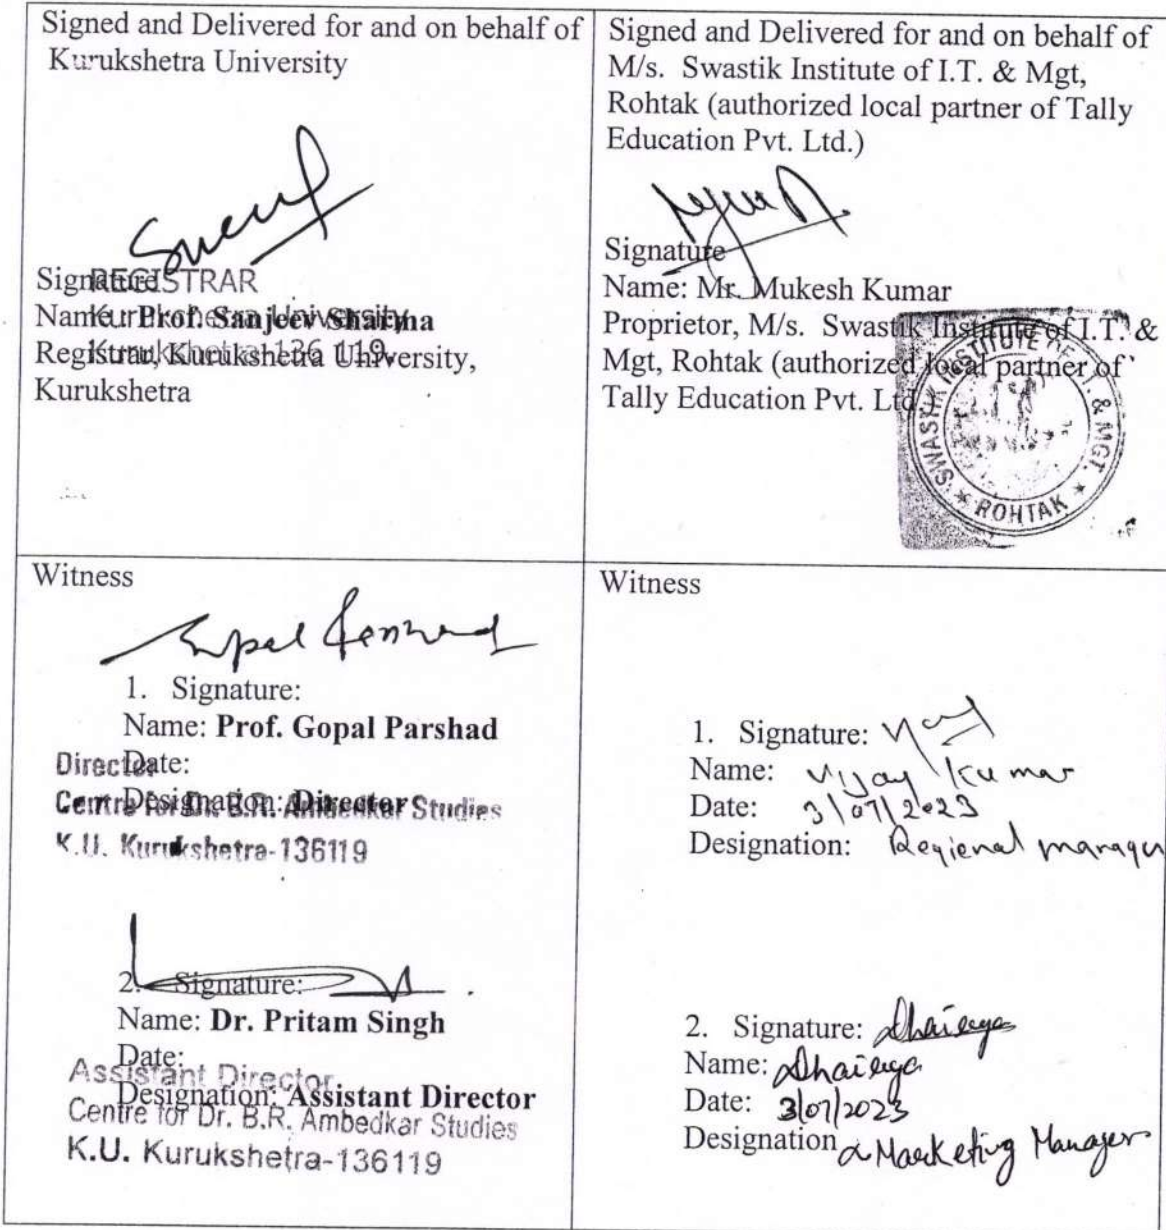 Signed and Delivered for and on behalf of
Kurukshetra University
Signature
REGISTRAR
Name: Prof. Sanjeev Sharma
Kurukshetra University
Registrar, Kurukshetra University,
Kurukshetra-136 119
Kurukshetra
Signed and Delivered for and on behalf of
M/s. Swastik Institute of I.T. & Mgt,
Rohtak (authorized local partner of Tally
Education Pvt. Ltd.)
Signature
Name: Mr. Mukesh Kumar
Proprietor, M/s. Swastik Institute of I.T. &
Mgt, Rohtak (authorized local partner of
Tally Education Pvt. Ltd.)
SWASTIK INSTITUTE OF I.T. & MGT.
* ROHTAK *
Witness
Gopal Parshad
1. Signature:
Name: Prof. Gopal Parshad
Date:
Director
Designation: Director
Centre for Dr. B.R. Ambedkar Studies
K.U. Kurukshetra-136119
2. Signature:
Name: Dr. Pritam Singh
Date:
Assistant Director
Designation: Assistant Director
Centre for Dr. B.R. Ambedkar Studies
K.U. Kurukshetra-136119
Witness
1. Signature:
Name: Vijay Kumar
Date: 3/07/2023
Designation: Regional manager
2. Signature:
Name:
Date: 3/07/2023
Designation Marketing Manager